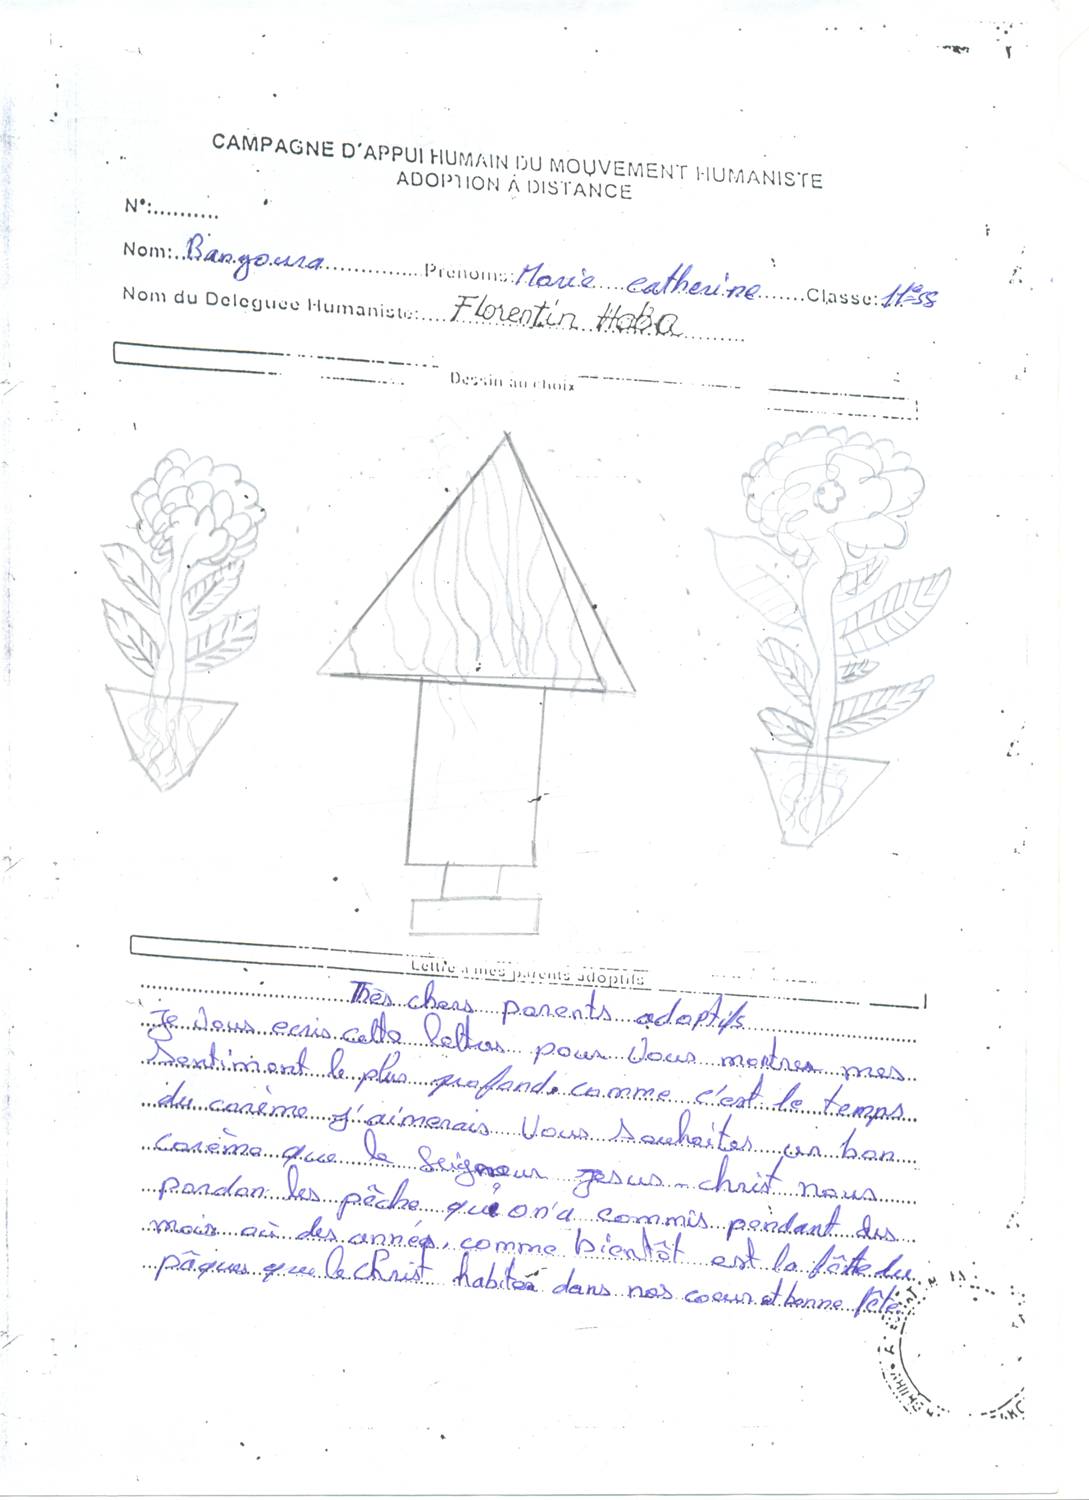 CAMPAGNE D'APPUI HUMAIN DU MOUVEMENT HUMANISTE
ADOPTION À DISTANCE
N°:..........
Nom: Bangoura Prénoms: Marie catherine Classe: 11e SS
Nom du Déléguée Humaniste: Florentin Haba
Dessin au choix
Lettre à mes parents adoptifs
Très chers parents adoptifs
Je Vous ecris cette lettres pour Vous montres mes
Sentiment le plus profand. comme c'est le temps
du carème j'aimerais Vous Souhaites un bon
carème que le Seigneur Jesus-christ nous
pardon les pêche qui on'a commis pendant des
mois où des année, comme bientôt est la fête du
pâques que le christ habites dans nos coeur et bonne fête